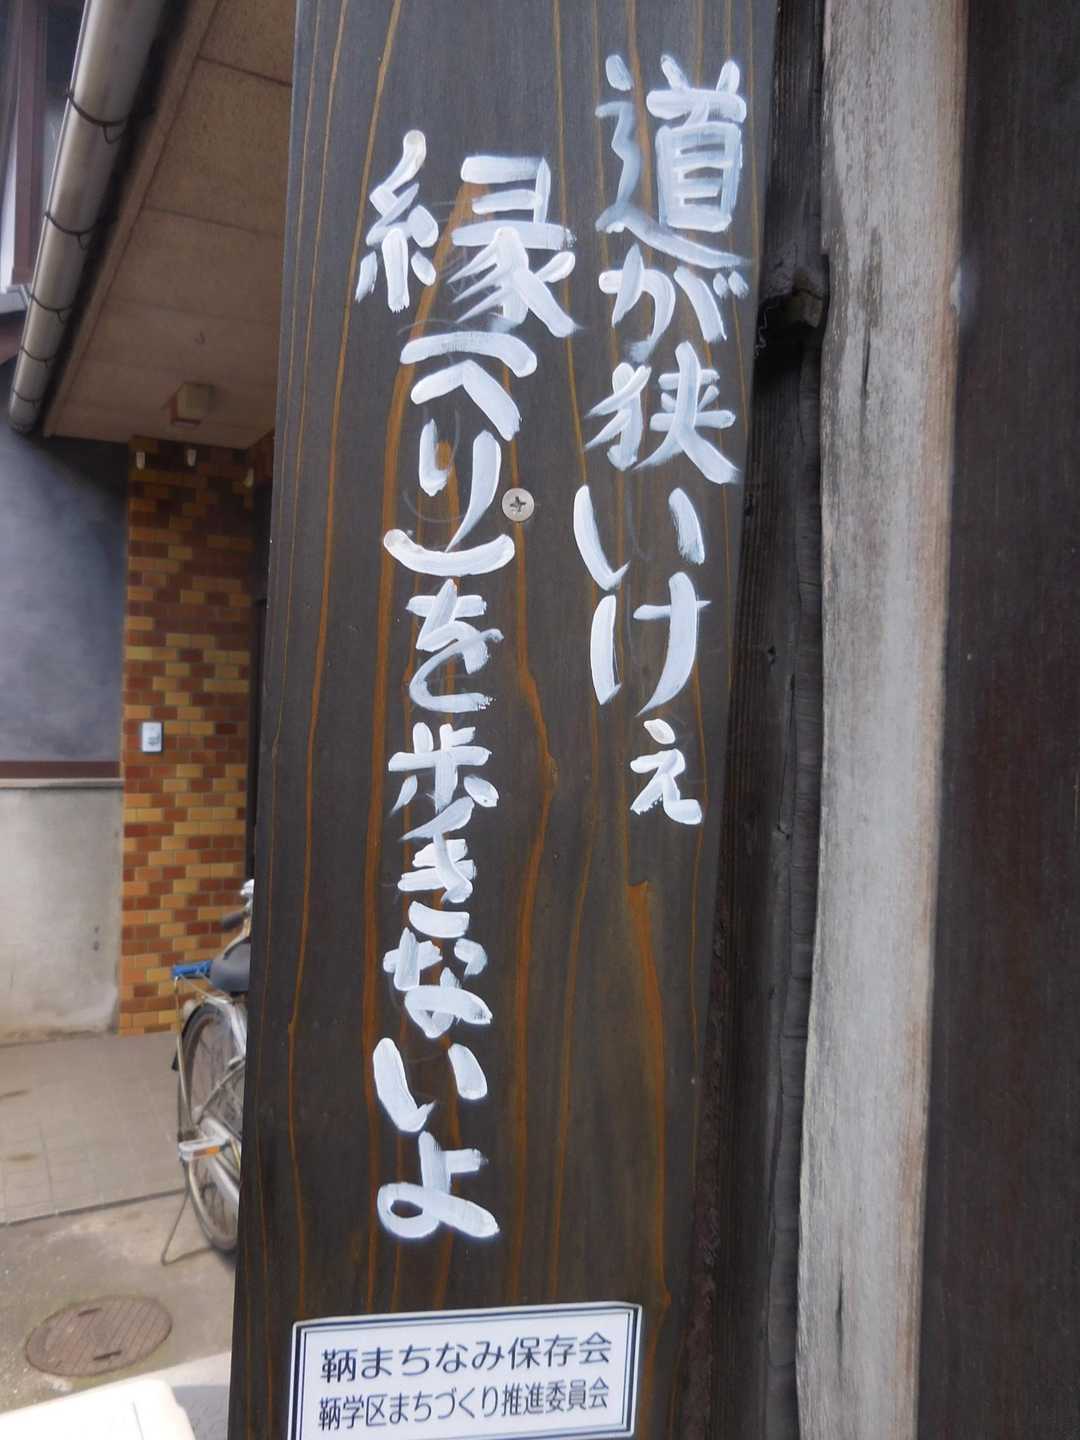 道が狭いけぇ
縁(へり)を歩きないよ
鞆まちなみ保存会
鞆学区まちづくり推進委員会